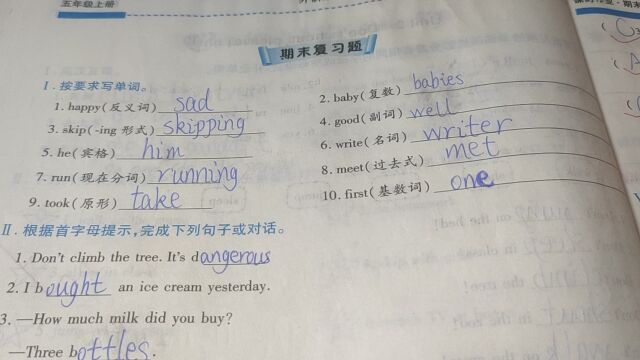 五年级上册
期末复习题
Ⅰ. 按要求写单词。
1. happy(反义词) sad
2. baby(复数) babies
3. skip(-ing 形式) skipping
4. good(副词) well
5. he(宾格) him
6. write(名词) writer
7. run(现在分词) running
8. meet(过去式) met
9. took(原形) take
10. first(基数词) one
Ⅱ. 根据首字母提示,完成下列句子或对话。
1. Don't climb the tree. It's dangerous
2. I bought an ice cream yesterday.
3. —How much milk did you buy?
—Three bottles.